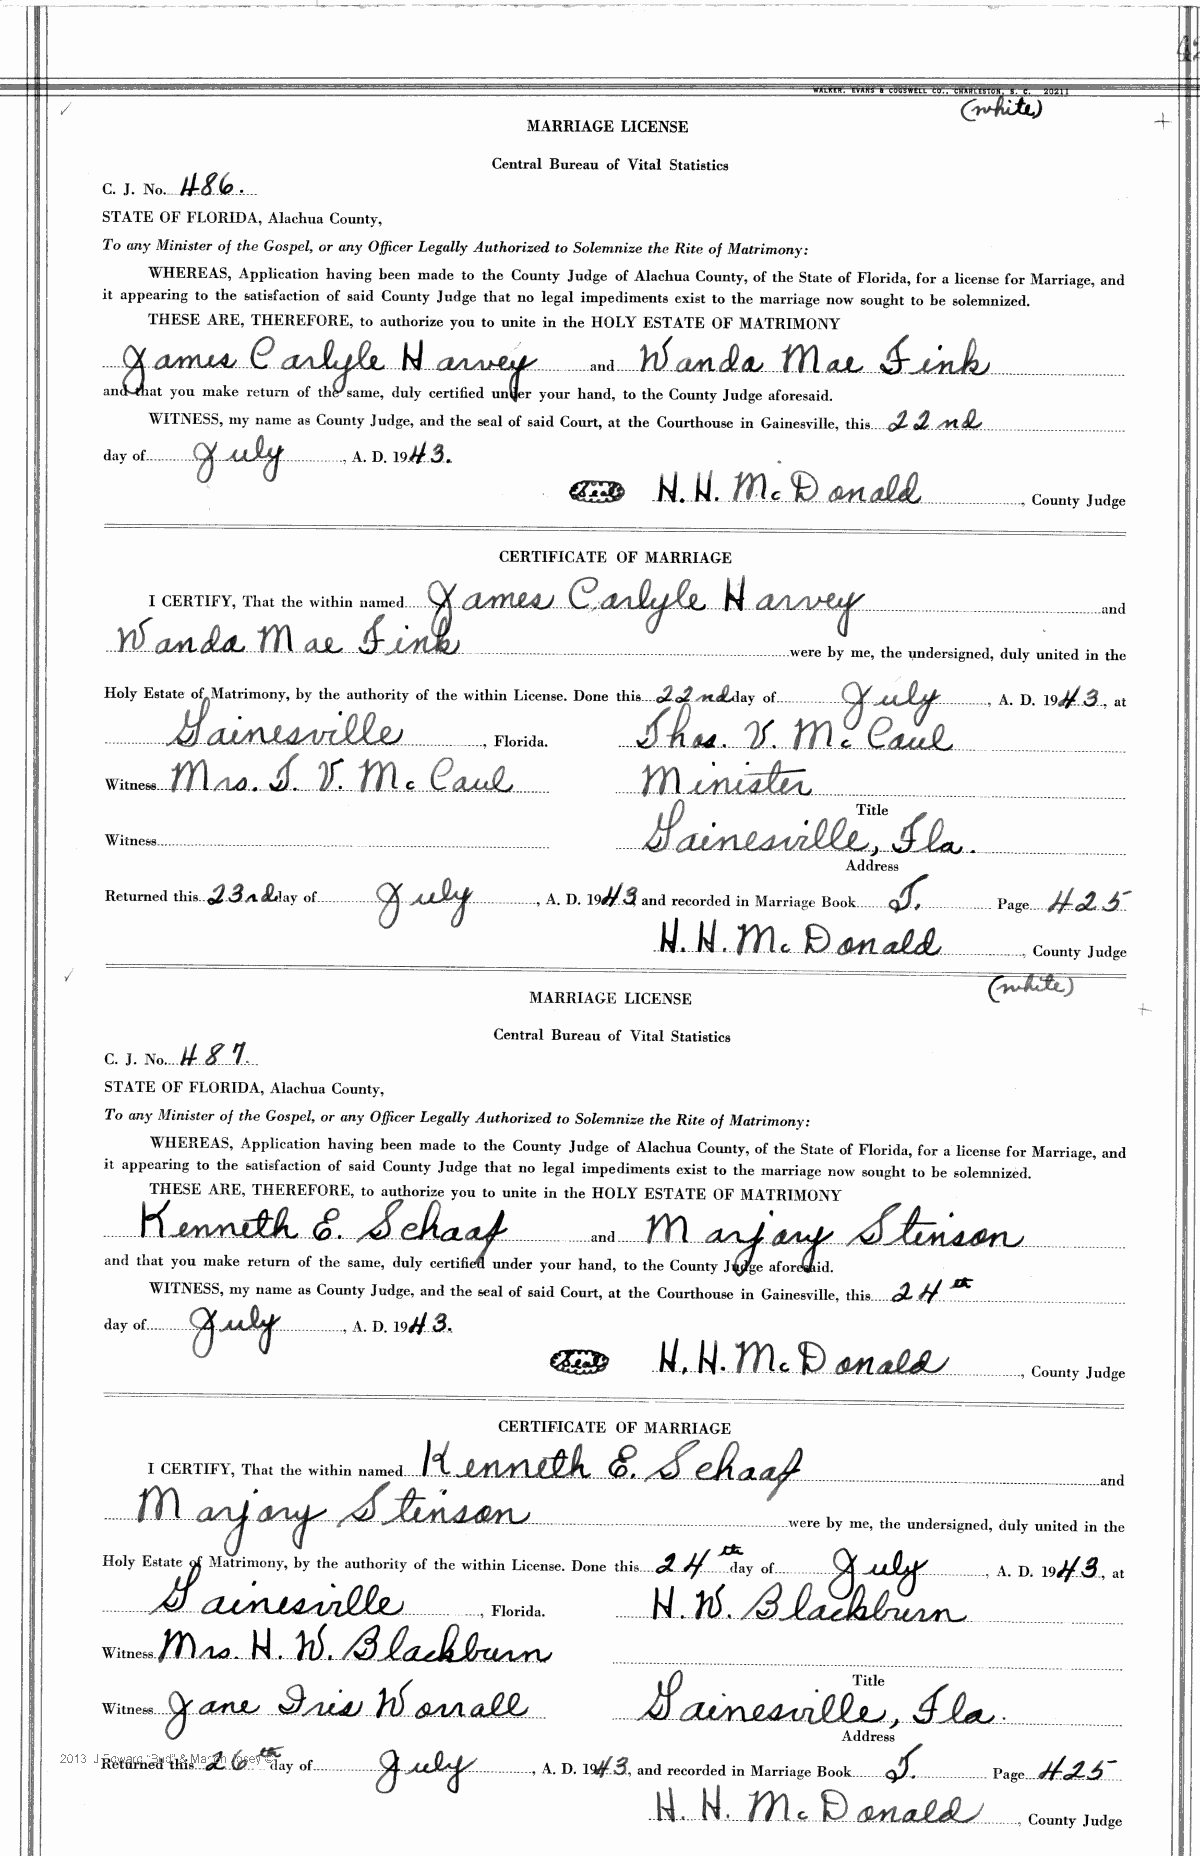 WALKER, EVANS & COGSWELL CO., CHARLESTON, S. C. 20211
(white)
MARRIAGE LICENSE
Central Bureau of Vital Statistics
C. J. No. 486.
STATE OF FLORIDA, Alachua County,
To any Minister of the Gospel, or any Officer Legally Authorized to Solemnize the Rite of Matrimony:
WHEREAS, Application having been made to the County Judge of Alachua County, of the State of Florida, for a license for Marriage, and
it appearing to the satisfaction of said County Judge that no legal impediments exist to the marriage now sought to be solemnized.
THESE ARE, THEREFORE, to authorize you to unite in the HOLY ESTATE OF MATRIMONY
James Carlyle Harvey and Wanda Mae Fink
and that you make return of the same, duly certified under your hand, to the County Judge aforesaid.
WITNESS, my name as County Judge, and the seal of said Court, at the Courthouse in Gainesville, this 22nd
day of July, A. D. 1943.
Seal H. H. McDonald, County Judge
CERTIFICATE OF MARRIAGE
I CERTIFY, That the within named James Carlyle Harvey and
Wanda Mae Fink were by me, the undersigned, duly united in the
Holy Estate of Matrimony, by the authority of the within License. Done this 22nd day of July, A. D. 1943, at
Gainesville, Florida. Thos. V. McCaul
Witness Mrs. T. V. McCaul Minister
Title
Witness Gainesville, Fla.
Address
Returned this 23rd day of July, A. D. 1943 and recorded in Marriage Book T. Page 425
H. H. McDonald, County Judge
(white)
MARRIAGE LICENSE
Central Bureau of Vital Statistics
C. J. No. 487.
STATE OF FLORIDA, Alachua County,
To any Minister of the Gospel, or any Officer Legally Authorized to Solemnize the Rite of Matrimony:
WHEREAS, Application having been made to the County Judge of Alachua County, of the State of Florida, for a license for Marriage, and
it appearing to the satisfaction of said County Judge that no legal impediments exist to the marriage now sought to be solemnized.
THESE ARE, THEREFORE, to authorize you to unite in the HOLY ESTATE OF MATRIMONY
Kenneth E. Schaaf and Marjory Stinson
and that you make return of the same, duly certified under your hand, to the County Judge aforesaid.
WITNESS, my name as County Judge, and the seal of said Court, at the Courthouse in Gainesville, this 24th
day of July, A. D. 1943.
Seal H. H. McDonald, County Judge
CERTIFICATE OF MARRIAGE
I CERTIFY, That the within named Kenneth E. Schaaf and
Marjory Stinson were by me, the undersigned, duly united in the
Holy Estate of Matrimony, by the authority of the within License. Done this 24th day of July, A. D. 1943, at
Gainesville, Florida. H. W. Blackburn
Witness Mrs. H. W. Blackburn
Title
Witness Jane Iris Worrall Gainesville, Fla.
Address
Returned this 26th day of July, A. D. 1943, and recorded in Marriage Book T. Page 425
H. H. McDonald, County Judge